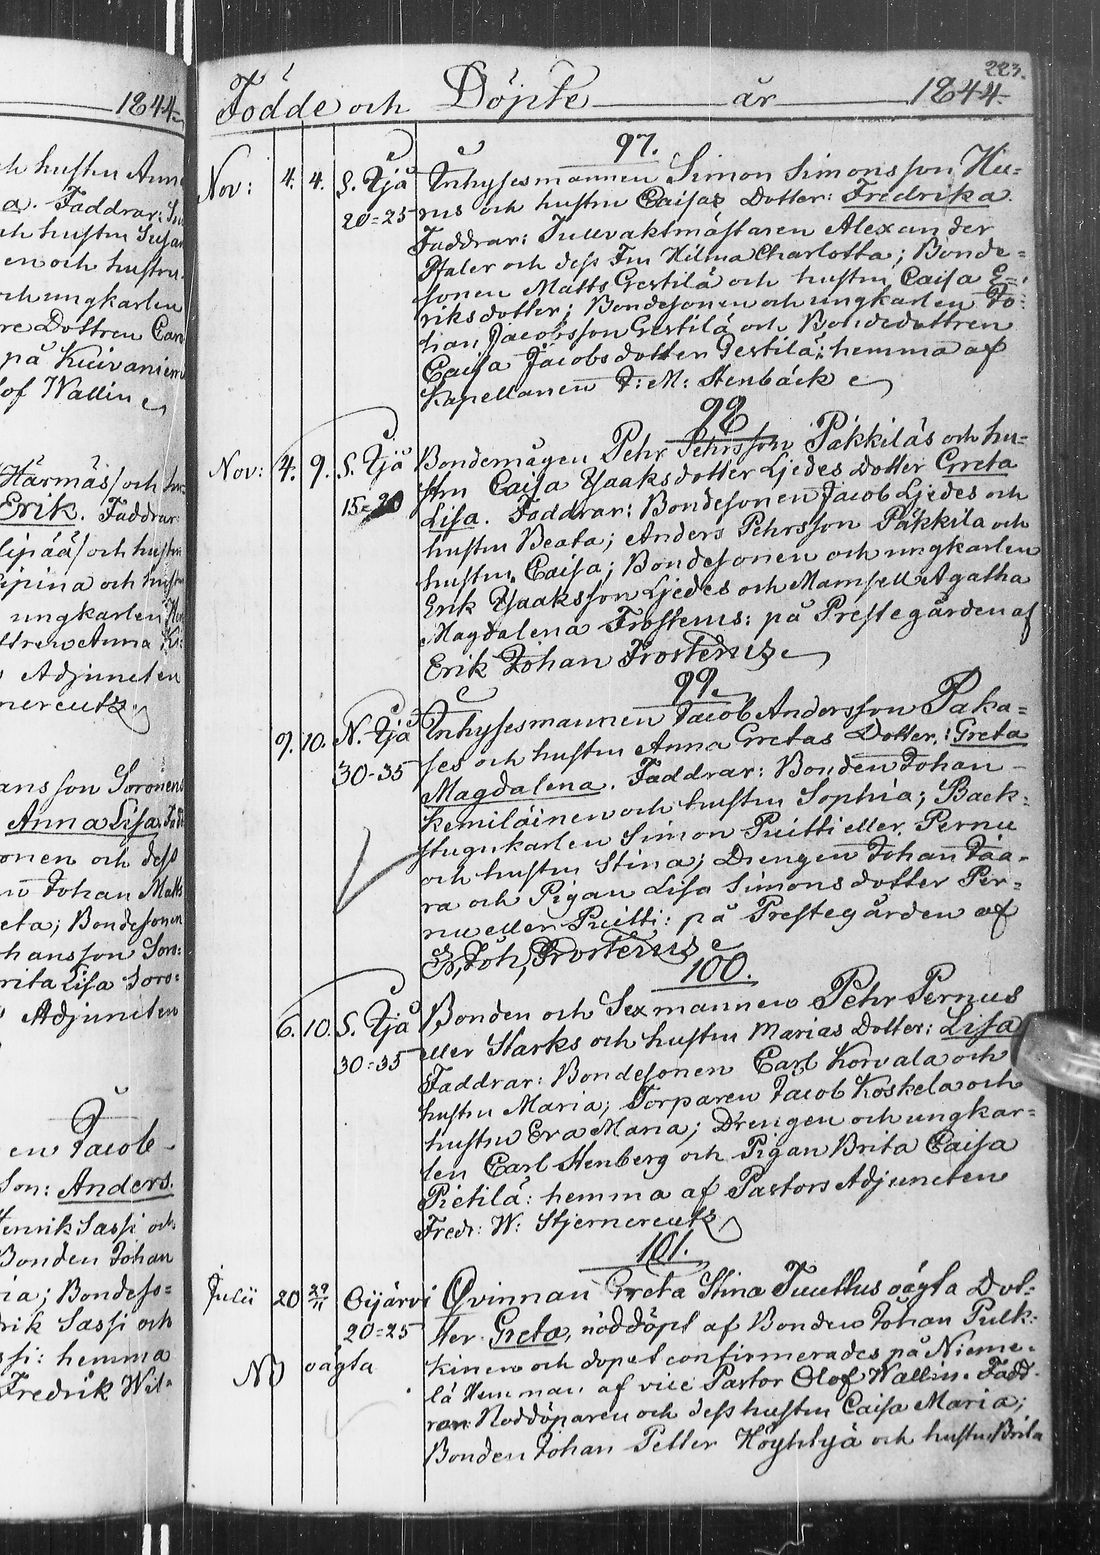 1844.
ch hustru Anna
a. Faddrar:
ch hustru Susan
en och hustru
och ungkarlen
re Dottren Car
på Kuivaniemi
lof Wallin
Härmäs/och hu
Erik. Faddrar:
lipää/och hustru
ipina och hust
ungkarlen
ttren Anna
Adjuncten
nercutz.
ansson Soronens
Anna Lisa,
onen och dess
Johan Matts
eta; Bondesonen
hansson Soro:
rita Lisa Soro:
Adjuncten
en Jacob
Son: Anders.
Henrik Sassi och
Bonden Johan
ia; Bondeso=
rik Sassi och
ssi: hemma
Fredrik Wil=
223.
Födde och Döpte år 1844.
97.
Nov: 4. 4. S. Ijå Inhysesmannen Simon Simonsson Hu=
20=25 rus och hustru Caisas Dotter: Fredrika.
Faddrar: Tullvaktmästaren Alexander
Ptaler och dess Fru Hilma Charlotta; Bonde=
sonen Matts Gestilä och hustru Caisa E=
riksdotter; Bondesonen och ungkarlen Jo=
han Jacobsson Gestilä och Bondedottren
Caisa Jacobsdotter Gestilä: hemma af
Kapellanen J: M: Stenbäck
98
Nov: 4. 9. S. Ijå Bondemågen Pehr Pehrsson Päkkiläs och hu=
15=20 stru Caisa Isaksdotter Ljedes Dotter Greta
Lisa. Faddrar: Bondesonen Jacob Ljedes och
hustru Beata; Anders Pehrsson Päkkilä och
hustru Caisa; Bondesonen och ungkarlen
Erik Isaksson Ljedes och Mamsell Agatha
Magdalena Frosterus: på Prestegården af
Erik Johan Frosterus
99.
9. 10. N. Ijå Inhysesmannen Jacob Andersson Paka=
30-35 ses och hustru Anna Gretas Dotter: Greta
Magdalena. Faddrar: Bonden Johan
Kemiläinen och hustru Sophia; Back=
stugukarlen Simon Puitti eller Pernu
och hustru Stina; Drengen Johan Jaa=
ra och Pigan Lisa Simonsdotter Per=
nu eller Puitti: på Prestegården af
E, Joh, Frosterus
100.
6. 10. S. Ijå Bonden och Sexmannen Pehr Pernus
30=35 eller Starks och hustru Marias Dotter: Lisa
Faddrar: Bondesonen Carl Korvala och
hustru Maria; Torparen Jacob Koskela och
hustru Eva Maria; Drengen och ungkar=
len Carl Stenberg och Pigan Brita Caisa
Pietilä: hemma af Pastors Adjuncten
Fredr: W: Stjernercutz
101.
Julii 20 29/11 Oijärvi Qvinnan Greta Stina Tuuttus oägta Dot=
20=25 ter Greta, nöddöpt af Bonden Johan Pulk=
NB oägta kinen och dopet confirmerades på Nieme=
lä Hemman af vice Pastor Olof Wallin. Fadd=
rar: Nöddöparen och dess hustru Caisa Maria;
Bonden Johan Petter Höyhtyä och hustru Brita